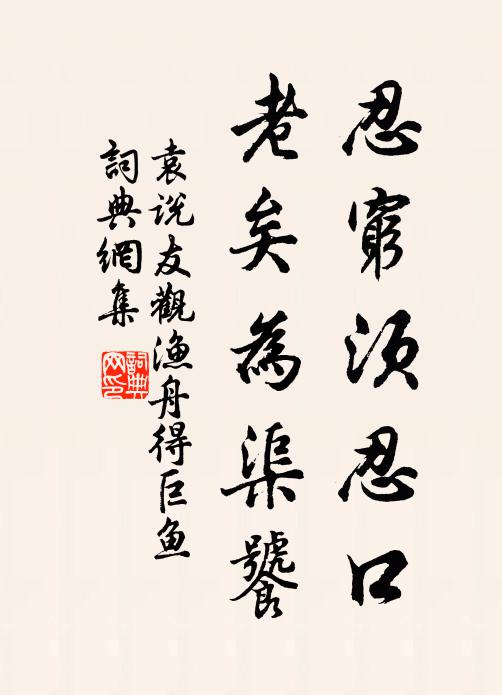 忍窮須忍口
老矣為渠饕
袁说友觀漁舟得巨鱼
詞典網集
詞典
网印